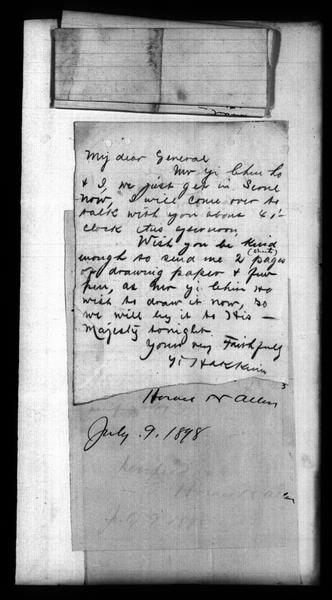 My dear General
Mr Yi Chin ho
& I, we just get in Seoul
now, I will come over to
talk with you about 4 o'
clock this yternoon.
Wish you be kind
enough to send me 2 pages
(sheets)
of drawing paper & fine
pen, as Mr Yi Chin Ho
wish to draw it now, so
we will by it to His
Majesty tonight.
Yours very Faithfully
Yi Hak Kiun
Horace N Allen
July. 9. 1898
Horace N Allen